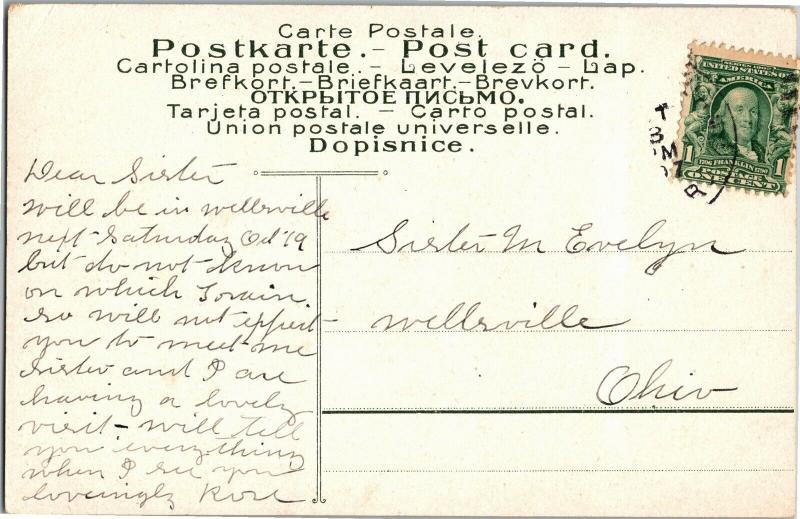 Carte Postale.
Postkarte. – Post card.
Cartolina postale. – Levelező – Lap.
Brefkort. – Briefkaart. – Brevkort.
ОТКРЫТОЕ ПИСЬМО.
Tarjeta postal. – Carto postal.
Union postale universelle.
Dopisnice.
UNITED STATES OF
AMERICA
1 1706 FRANKLIN 1790 1
POSTAGE
ONE CENT
T
3
M
07
R
Dear Sister
will be in wellsville
next Saturday Oct 19
but do not know
on which Train.
so will not expect
you to meet me
Sister and I are
having a lovely
visit – will tell
you everything
when I see you
loveingly Rose
Sister M Evelyn
wellsville
Ohio